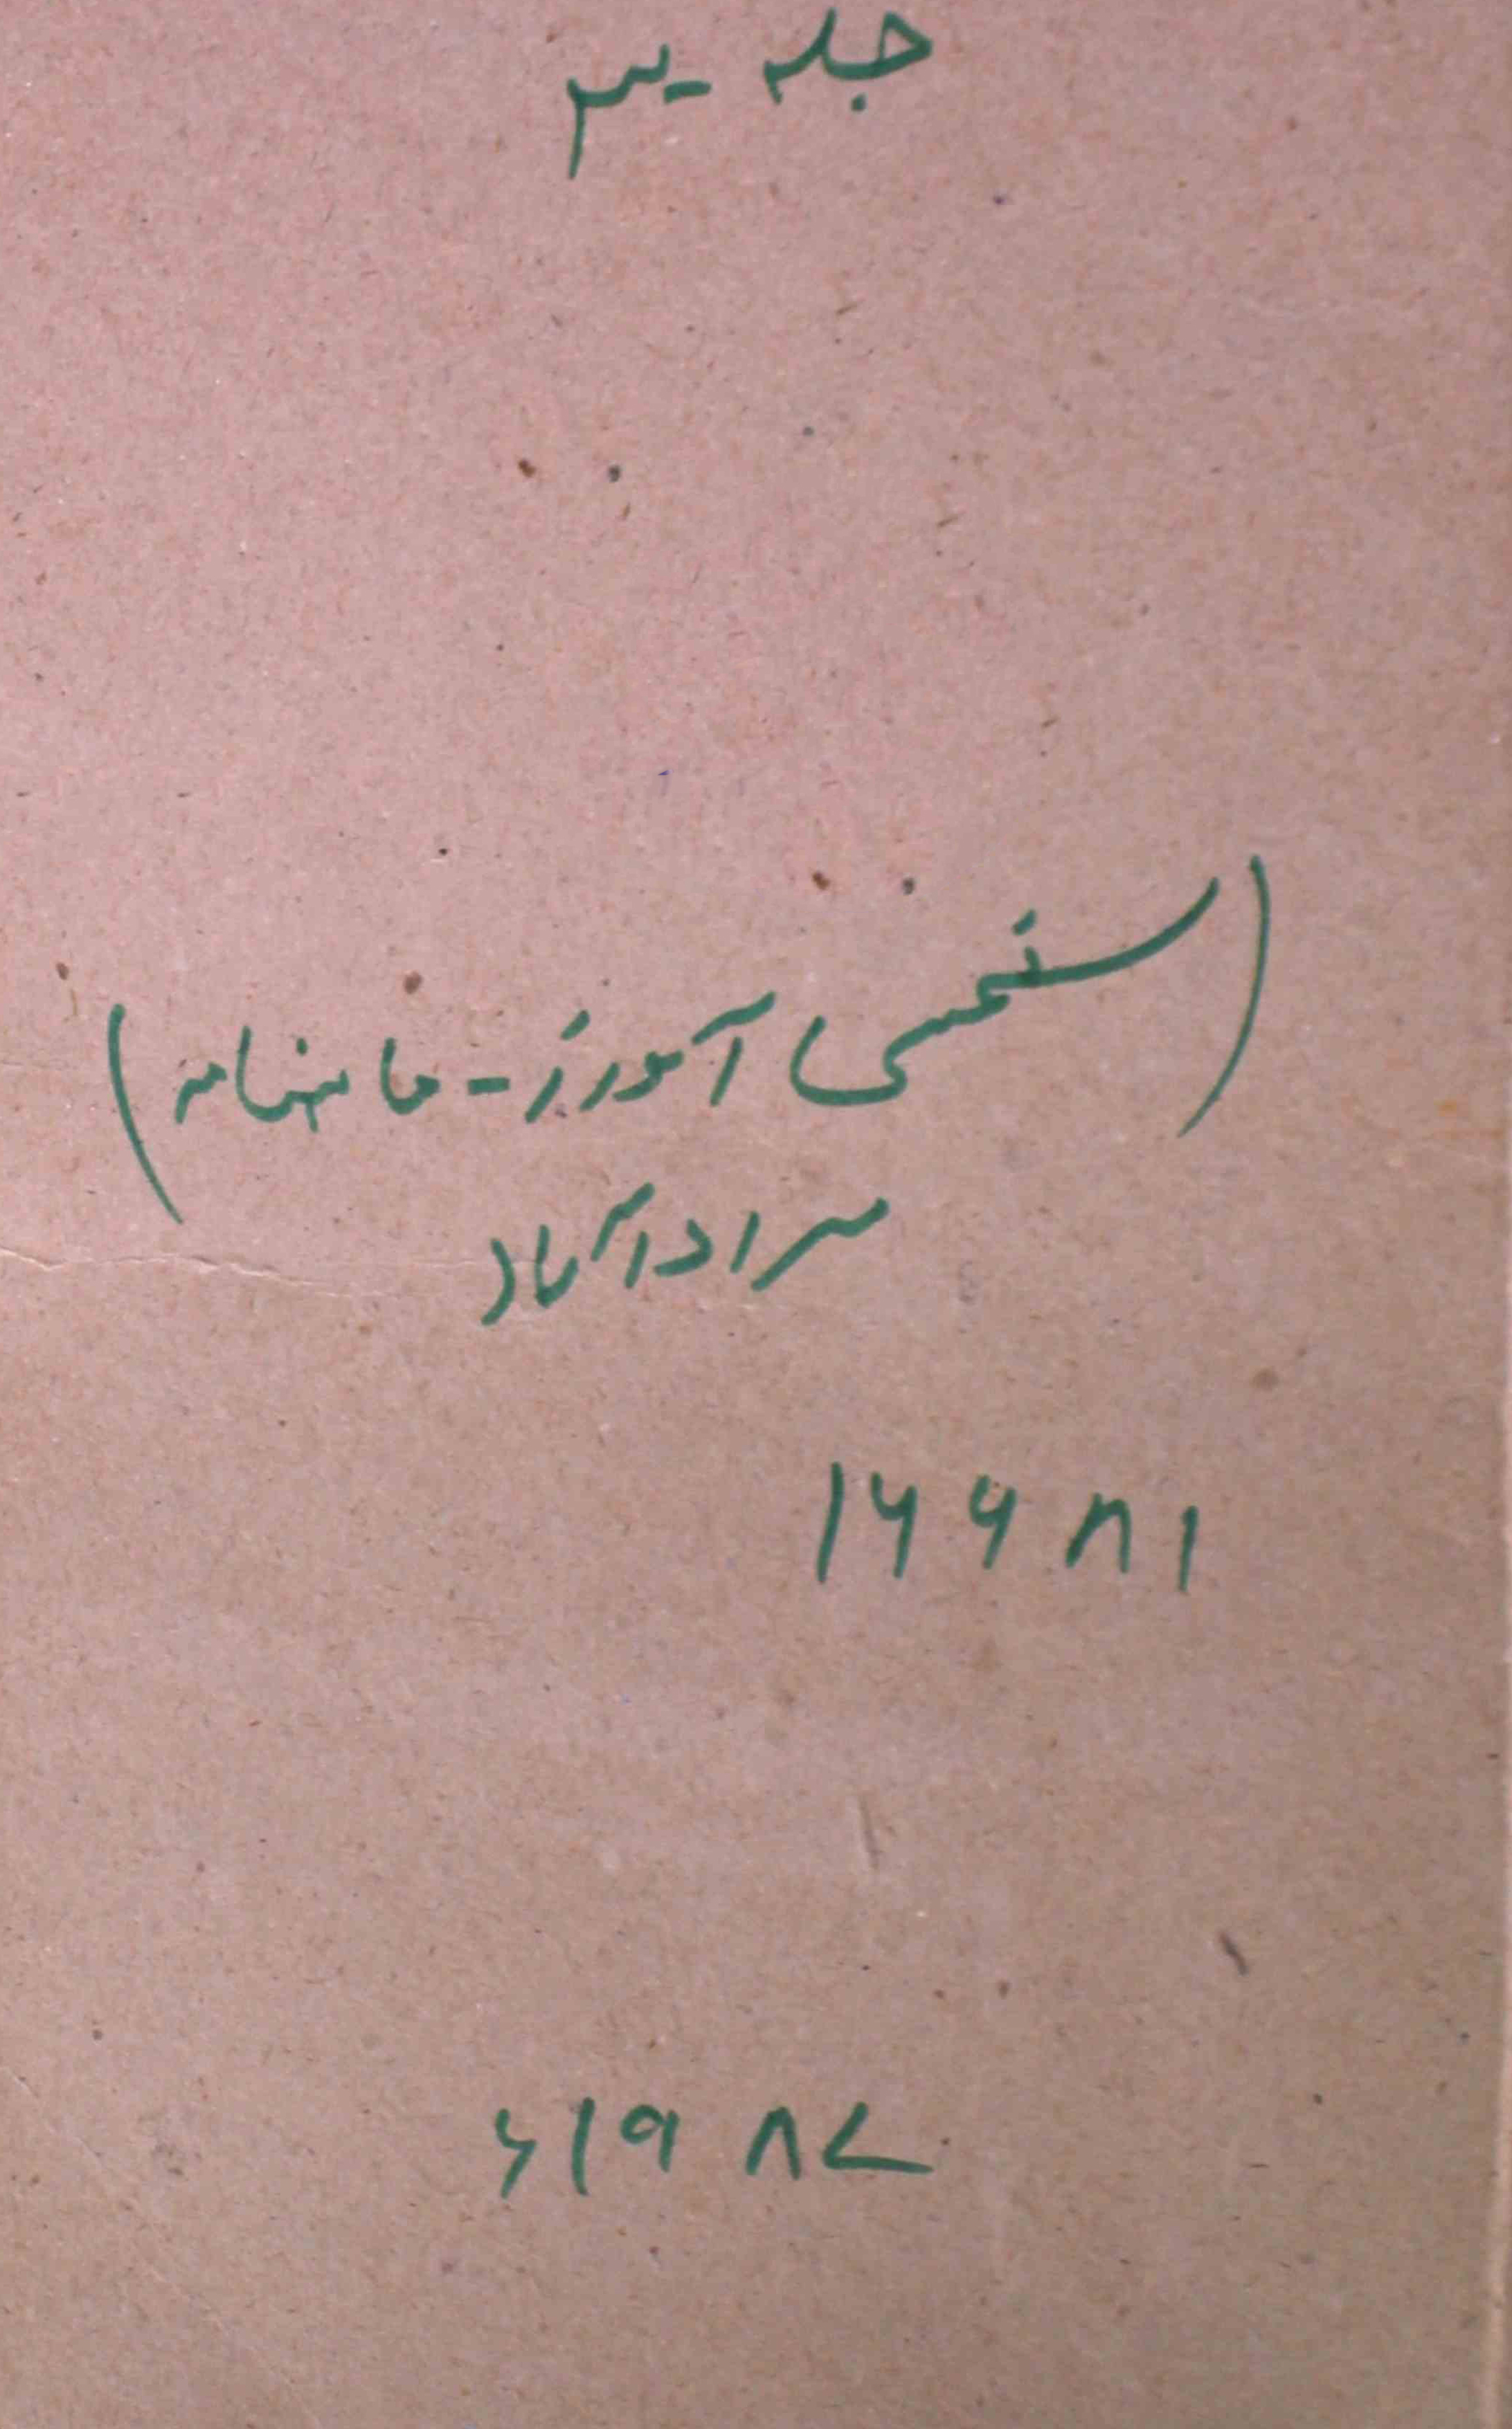 جلد ـ ۳
(سنسنی آموز ـ ماہنامہ)
مرادآباد
۱۶۶۸۱
۱۹۸۷ء